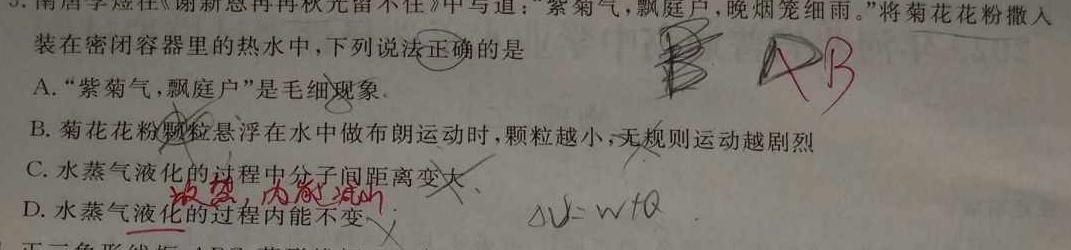 南唐李煜在《谢新恩冉冉秋光留不住》中写道:“紫菊气,飘庭户,晚烟笼细雨。”将菊花花粉撒入
装在密闭容器里的热水中,下列说法正确的是
B AB
A.“紫菊气,飘庭户”是毛细现象.
B. 菊花花粉颗粒悬浮在水中做布朗运动时,颗粒越小,无规则运动越剧烈
C. 水蒸气液化的过程中分子间距离变大
放热,内能减小
D. 水蒸气液化的过程内能不变
ΔU=W+Q